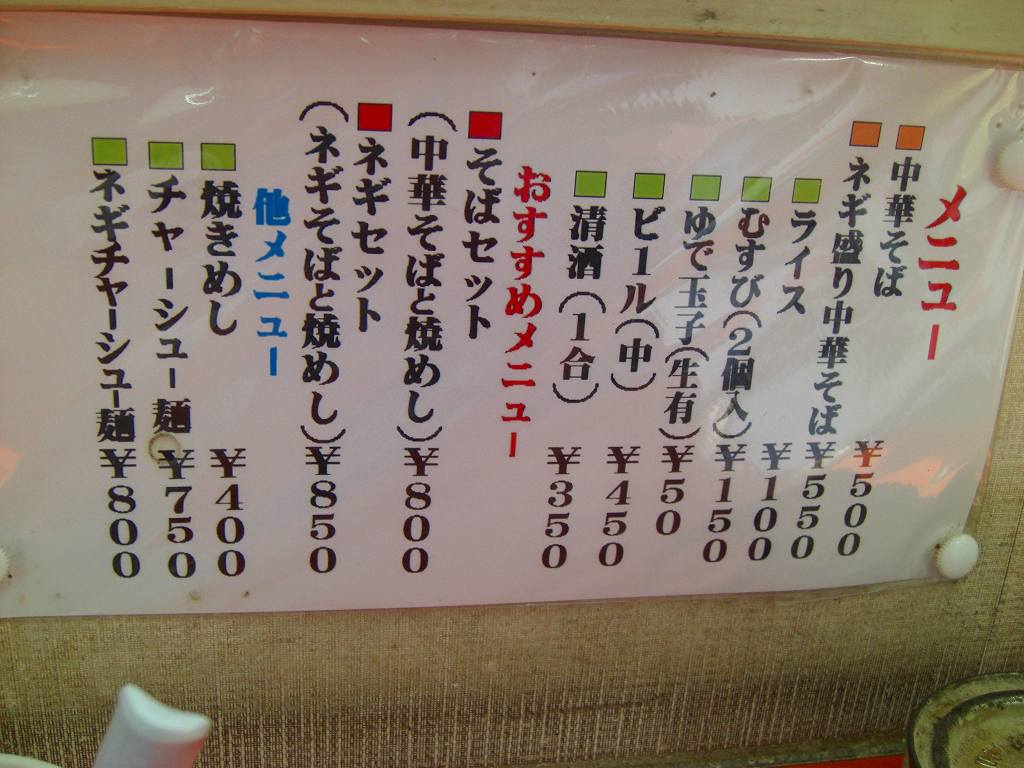 メニュー
■中華そば ¥500
■ネギ盛り中華そば ¥550
■ライス ¥100
■むすび(2個入) ¥150
■ゆで玉子(生有) ¥50
■ビール(中) ¥450
■清酒(1合) ¥350
おすすめメニュー
■そばセット
(中華そばと焼めし) ¥800
■ネギセット
(ネギそばと焼めし) ¥850
他メニュー
■焼きめし ¥400
■チャーシュー麺 ¥750
■ネギチャーシュー麺 ¥800